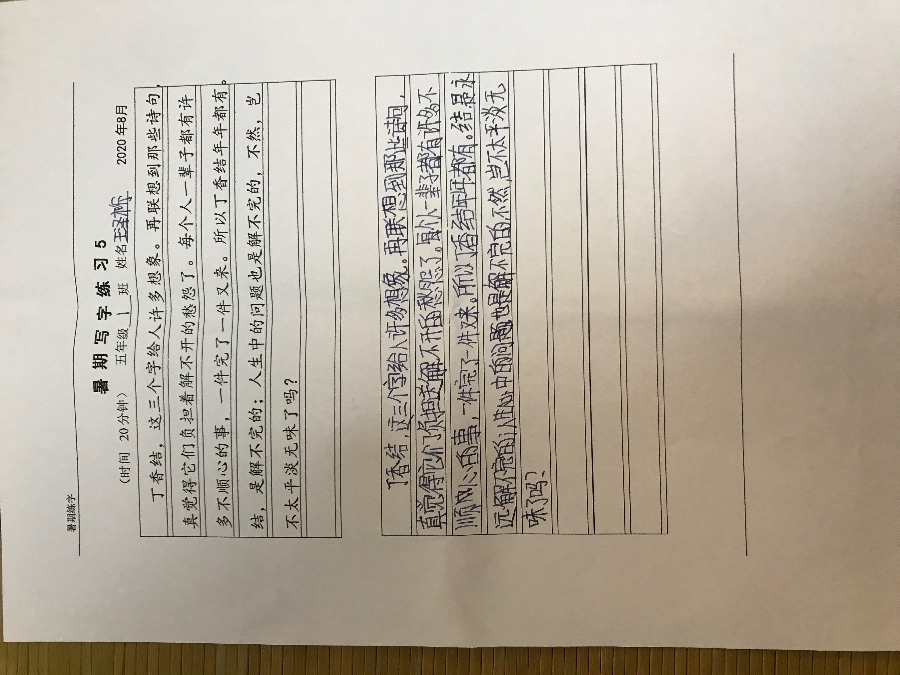 暑期练字
暑 期 写 字 练 习 5
（时间 20分钟） 五年级 1 班 姓名 2020年8月
丁香结，这三个字给人许多想象。再联想到那些诗句，
真觉得它们负担着解不开的愁怨了。每个人一辈子都有许
多不顺心的事，一件完了一件又来。所以丁香结年年都有。
结，是解不完的；人生中的问题也是解不完的，不然，岂
不太平淡无味了吗？
丁香结，这三个字给人许多想象。再联想到那些诗句，
真觉得它们负担送解不开的愁怨了。每个人一辈子都有许多不
顺心的事，一件完了一件又来。所以丁香结年年都有。结是永
远解不完的，人生中的问题也是解不完的，不然，岂不太平淡无
味了吗？